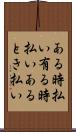 ある時払
い有る時
払いある
とき払い